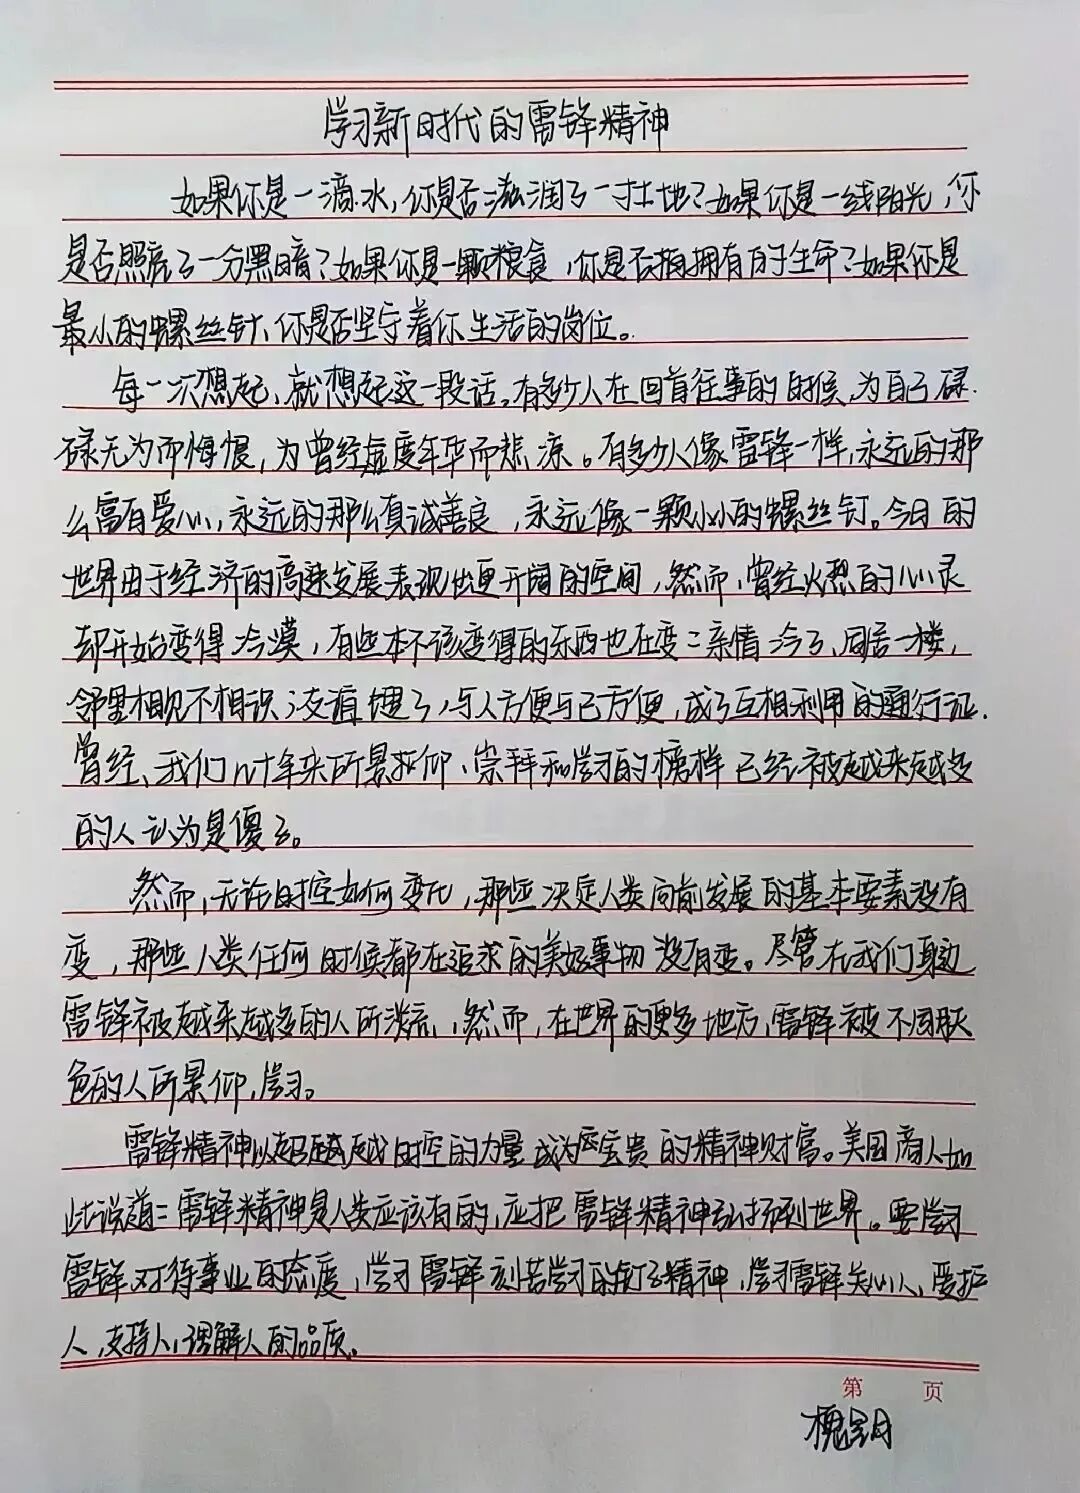 学习新时代的雷锋精神
如果你是一滴水,你是否滋润了一寸土地?如果你是一线阳光,你
是否照亮了一分黑暗?如果你是一颗粮食,你是否拥有有于生命?如果你是
最小的螺丝钉、你是否坚守着你生活的岗位。
每一次想起,就想起这一段话。有多少人在回首往事的时候,为自己碌
碌无为而悔恨,为曾经虚度年华而悲凉。有多少人像雷锋一样,永远的那
么富有爱心,永远的那么真诚善良,永远像一颗小小的螺丝钉。今日的
世界由于经济的高速发展表现出更开阔的空间,然而,曾经火烈的心灵
却开始变得冷漠,有些本不该变得的东西也在变:亲情冷了,同居一楼,
邻里相见不相识;友谊埋了,与人方便与己方便,成了互相利用的通行证.
曾经、我们几十年来所景仰、崇拜和学习的榜样已经被越来越多
的人认为是傻子。
然而,无论时空如何变化,那些决定人类向前发展的基本要素没有
变,那些人类任何时候都在追求的美好事物没有变。尽管在我们身边
雷锋被越来越多的人所淡忘,然而,在世界的更多地方,雷锋被不同肤
色的人所景仰,学习。
雷锋精神以超越越时空的力量成为宝贵的精神财富。美国商人如
此说道:雷锋精神是人类应该有的,应把雷锋精神弘扬到世界。要学习
雷锋对待事业的态度,学习雷锋刻苦学习的钉子精神,学习雷锋关心人、爱护
人,支持人,理解人的品质。
第 页